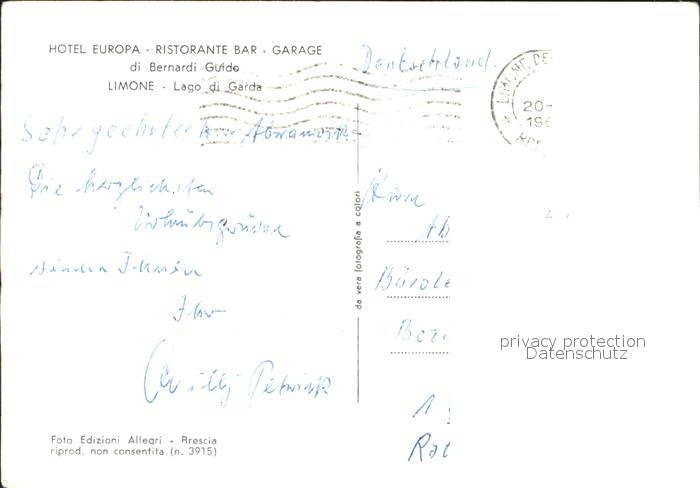 HOTEL EUROPA - RISTORANTE BAR - GARAGE
di Bernardi Guido
LIMONE - Lago di Garda
Deutschland.
LIMONE
20-
196
Sehr geehrter Herr
Die herzlichsten
Urlaubsgrüsse
sendet Ihnen
Ihr
Willy
da vera fotografia a colori
Herrn
Ab
Bürole
Bezi
1
Rat
privacy protection
Datenschutz
Foto Edizioni Allegri - Brescia
riprod. non consentita (n. 3915)